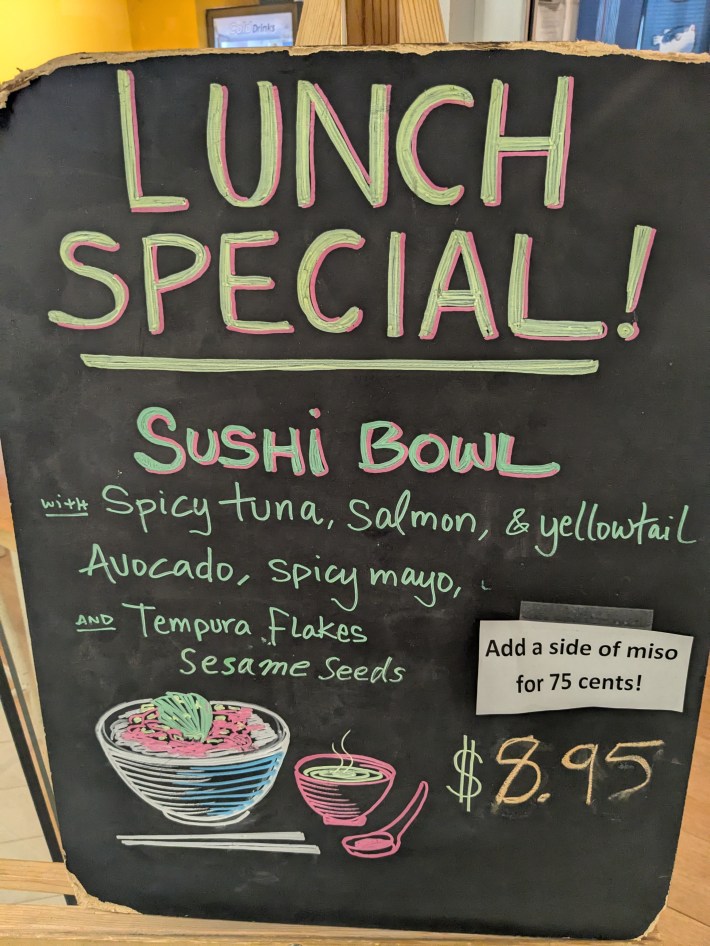 LUNCH
SPECIAL!
SUSHi BOWL
with Spicy tuna, Salmon, & yellowtail
Avocado, spicy mayo,
AND Tempura Flakes
Sesame Seeds
Add a side of miso
for 75 cents!
$8.95